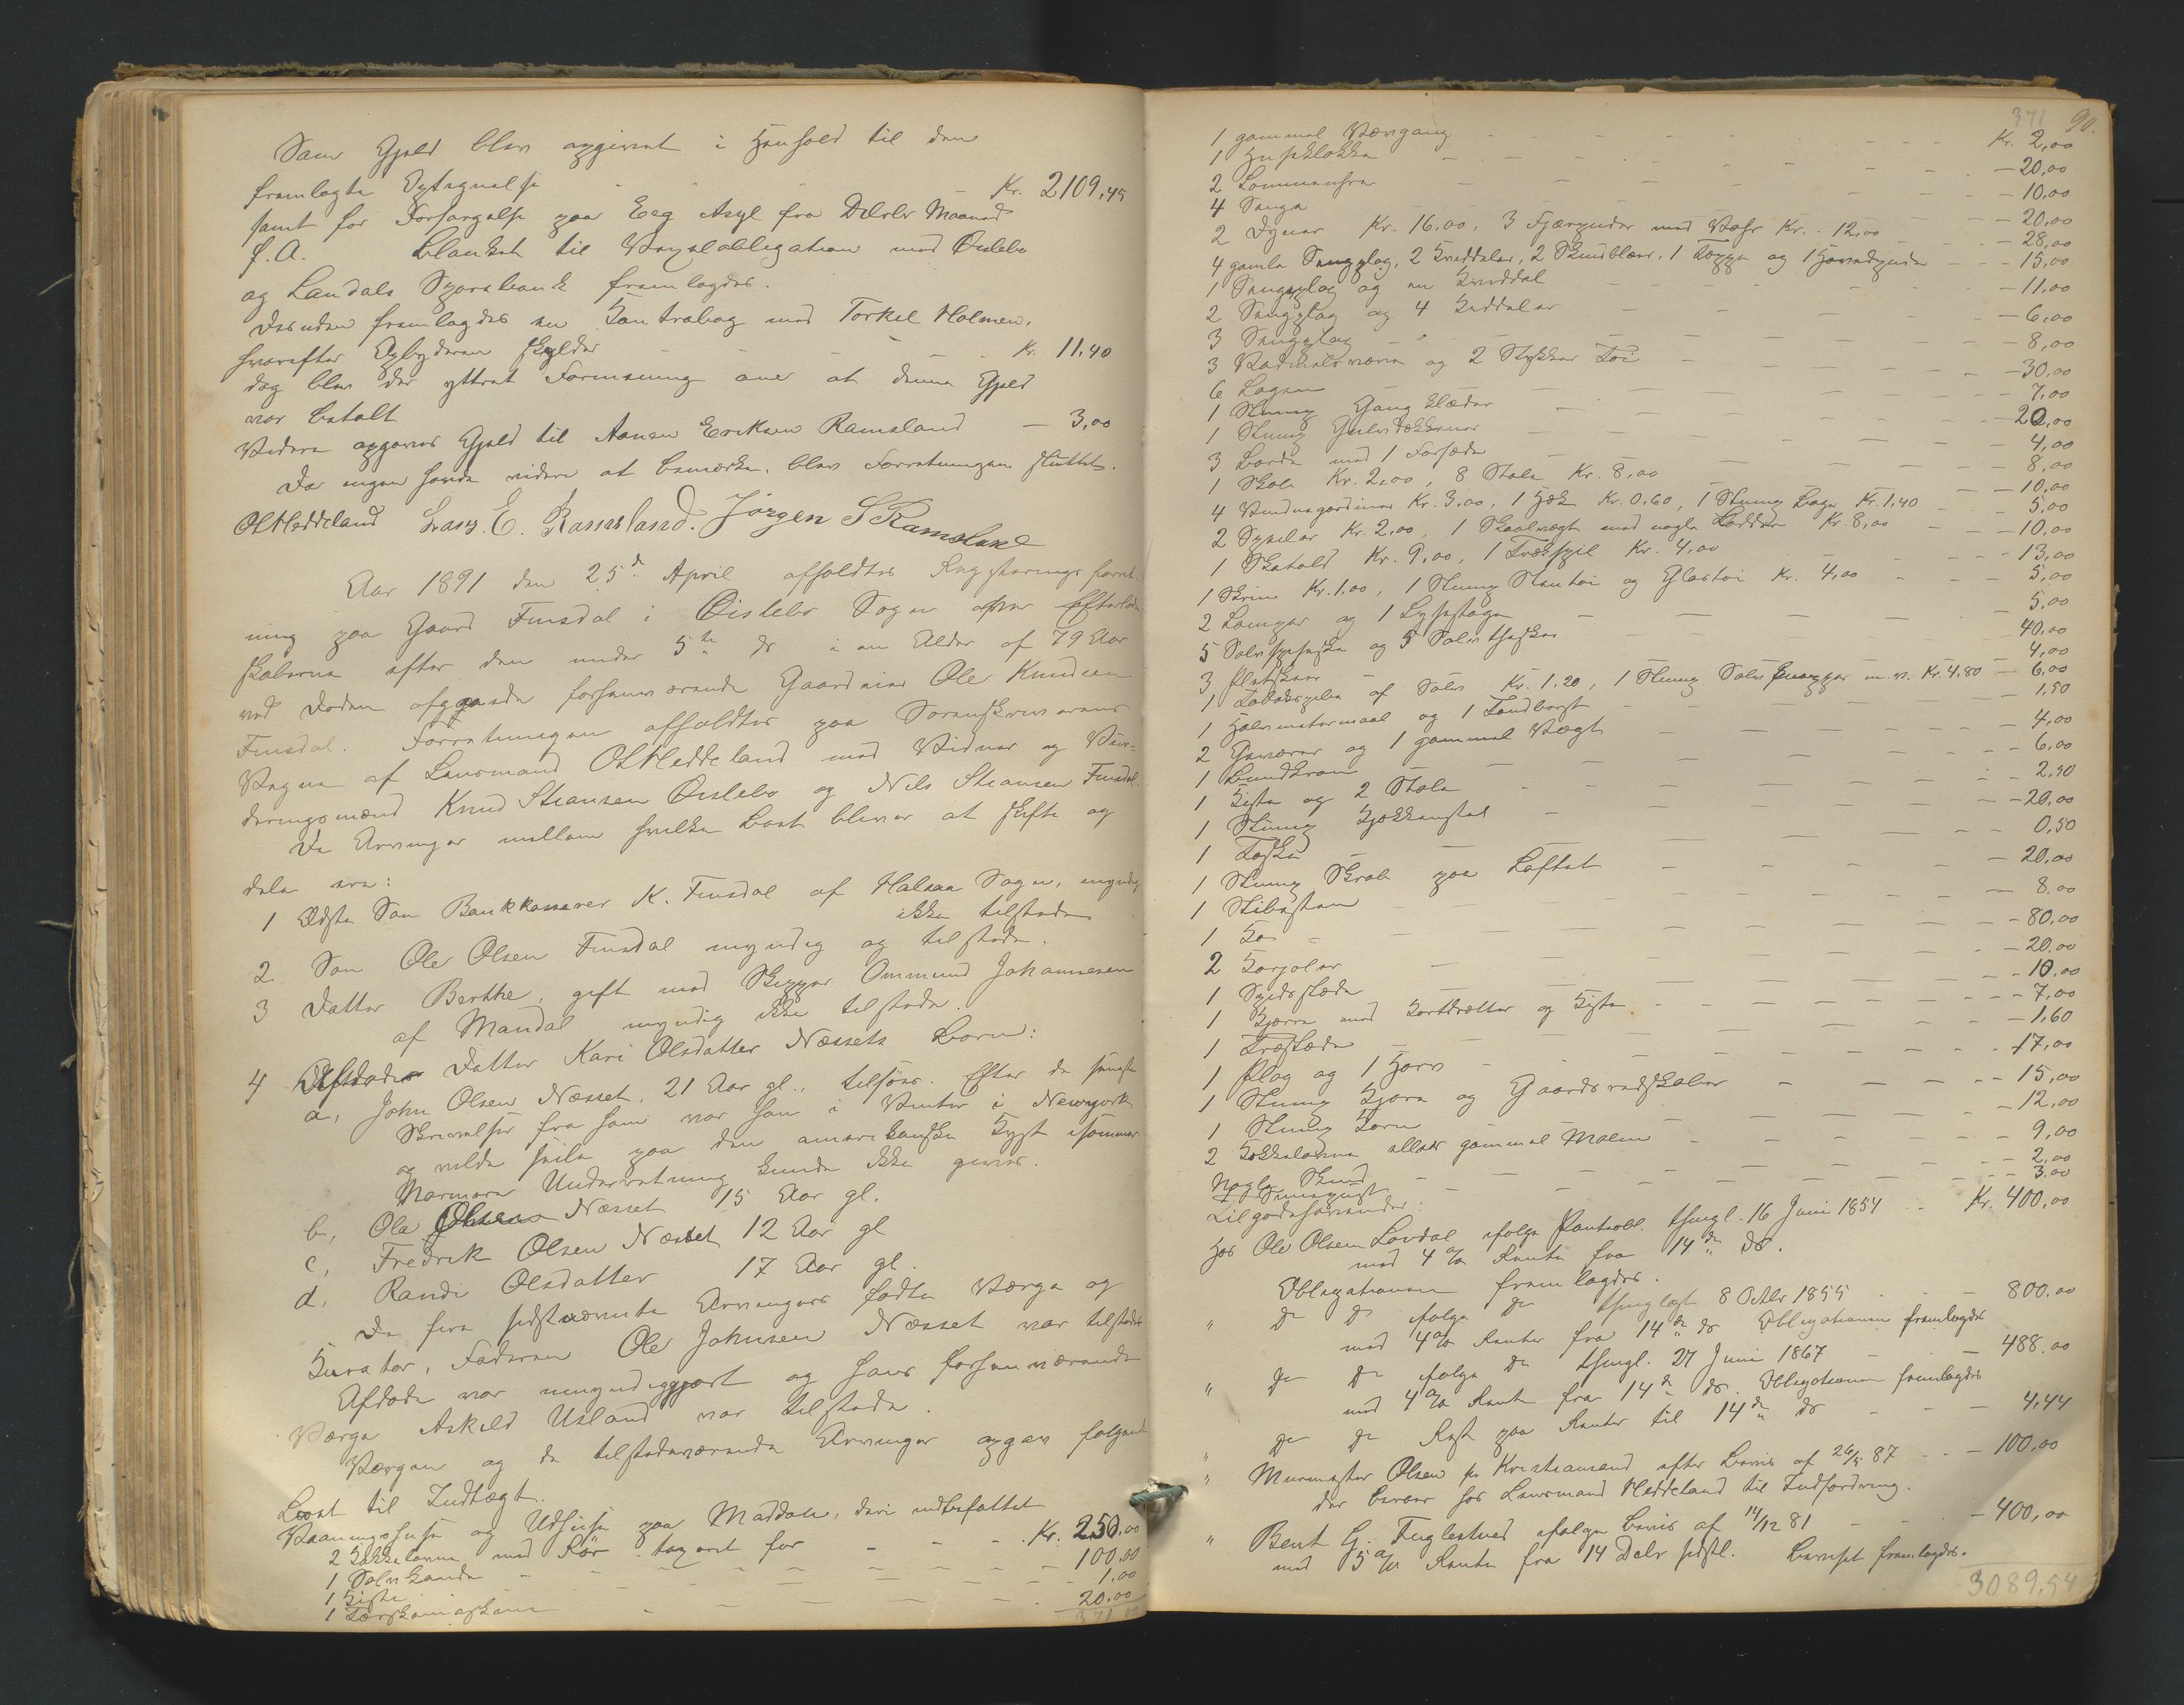 Som Gjeld blev opgivet i Henhold til den
fremlagte Optegnelse Kr. 2109,45
samt for Forsørgelse paa Eeg Asyl fra Decbr Maaned
f. A. Blanket til Vexelobligation med Øislebø
og Laudals Sparebank fremlagdes.
Desuden fremlagdes en Contrabog med Torkel Holmen,
hvorefter Opbyderen skylder Kr. 11,40
dog blev der yttret Formening over at denne Gjeld
var betalt
Videre opgaves Gjeld til Aanen Eriksen Ramsland — 3,00
Da ingen havde videre at bemærke, blev Forretningen sluttet.
OMeddeland Lars. E. Ramsland. Jørgen S Ramsland
Aar 1891 den 25de April afholdtes Registreringsforret-
ning paa Gaard Finsdal i Øislebø Sogn over Efterladen-
skaberne efter den under 5te ds i en Alder af 79 Aar
ved Døden afgaaede forhenværende Gaardeier Ole Knudsen
Finsdal. Forretningen afholdtes paa Sorenskriverens
Vegne af Lensmand OMeddeland med Vidner og Vur-
deringsmænd Knud Stiansen Øislebø og Nils Stiansen Finsdal.
De Arvinger mellem hvilke Boet bliver at skifte og
dele ere:
1 Ældste Søn Bankkasserer K. Finsdal af Halsaa Sogn, myndig
ikke tilstede
2 Søn Ole Olsen Finsdal myndig og tilstede.
3 Datter Berthe, gift med Skipper Ommund Johannesen
af Mandal myndig ikke tilstede.
4 Afdøde Datter Kari Olsdatter Næssets Børn:
a, John Olsen Næsset, 21 Aar gl., tilsjøs. Efter de seneste
Skrivelser fra ham var han i Vinter i Newyork
og vilde seile paa den amerikanske Kyst isommer.
Nærmere Underretning kunde ikke gives.
b, Ole Olsen Næsset 15 Aar gl.
c, Fredrik Olsen Næsset 12 Aar gl
d, Randi Olsdatter 17 Aar gl.
De fire sidstnævnte Arvingers fødte Værge og
Kurator, Faderen Ole Johnsen Næsset var tilstede
Afdøde var umyndiggjort og hans forhenværende
Værge Askild Usland var tilstede.
Værgen og de tilstedeværende Arvinger opgav følgende
Boet til Indtægt.
Vaaningshuse og Udhuse paa Maddalen, deri indbefattet
2 Kakkelovne med Rør taxeret for Kr. 250,00
1 Sølvkande — 100,00
1 Kiste — 1,00
1 Tærskemaskine 20,00
371,00
371 90.
1 gammel Vævgang Kr. 2,00
1 Husklokke — 20,00
2 Lommeuhre — 10,00
4 Senge — 20,00
2 Dyner Kr. 16,00, 3 Fjærpuder med Vahr Kr. 12,00 — 28,00
4 gamle Sengeplag, 2 Hviddeler, 2 Skindblæer, 1 Teppe og 1 Hovedpude — 15,00
1 Sengeplag og en Hviddel — 11,00
2 Sengeplag og 4 Hviddeler — 6,00
3 Sengeplag — 8,00
3 Vadmelsvæve og 2 Stykker Tøi — 30,00
6 Lagen — 7,00
1 Slump Gangklæder — 20,00
1 Slump Gulvdækkener — 4,00
3 Borde med 1 Forsæde — 8,00
1 Skab Kr. 2,00, 8 Stole Kr. 8,00 — 10,00
4 Vinduegardiner Kr. 3,00, 1 Kr. 0,60, 1 Slump Bøger Kr. 1,40 — 5,00
2 Kr. 2,00, 1 Skaalvægt med nogle Lodder Kr. 8,00 — 10,00
1 Skatold Kr. 9,00, 1 Trækspil Kr. 4,00 — 13,00
1 Skrin Kr. 1,00, 1 Slump Stentøi og Glastøi Kr. 4,00 — 5,00
2 Lamper og 1 Lysestage — 5,00
5 Sølvspiseskee og 5 Sølvtheskee 40,00
3 Pletskeer — 4,00
1 Tobakspibe af Sølv Kr. 1,20, 1 Slump Sølvknapper m. v. Kr. 4,80 — 6,00
1 Halvmetermaal og 1 — 1,50
2 Geværer og 1 gammel Vægt — 4,00
1 — 6,00
1 Kiste og 2 Stole — 2,50
1 Slump Kjøkkenstel — 20,00
1 0,50
1 Slump Skrab paa Loftet — 20,00
1 Slibesten 8,00
1 Ko — 80,00
2 — 20,00
1 Spidsslæde — 10,00
1 Kjærre med og Kiste — 7,00
1 Træslæde — 1,60
1 Plog og 1 Harv — 17,00
1 Slump Kjøre og Gaardsredskaber — 15,00
1 Slump Korn — 12,00
2 Kakkelovne allsaa gammel Malm 9,00
Nogle Skind 2,00
1 3,00
Tilgodehavender:
Hos Ole Olsen Løvdal ifølge Pantobl. thingl. 16 Juni 1854 Kr. 400,00
med 4 % Rente fra 14de ds.
Obligationen fremlagdes.
" do do ifølge do thinglæst 8 Octbr 1855 800,00
med 4 % Renter fra 14de ds Obligationen fremlagdes
" do do ifølge do thingl. 27 Juni 1867 — 488,00
med 4 % Rente fra 14de ds. Obligationen fremlagdes
do do Rest paa Renter til 14de ds — 4,44
" Murmester Olsen pr Kristiansand efter Bevis af 26/5 87 — 100,00
der beroer hos Lensmand Meddeland til Indfordring.
" Bent G. Fuglestved ifølge Bevis af 14/12 81 — 400,00
med 5 % Rente fra 14 Decbr sidstl. Beviset fremlagdes.
3089,54